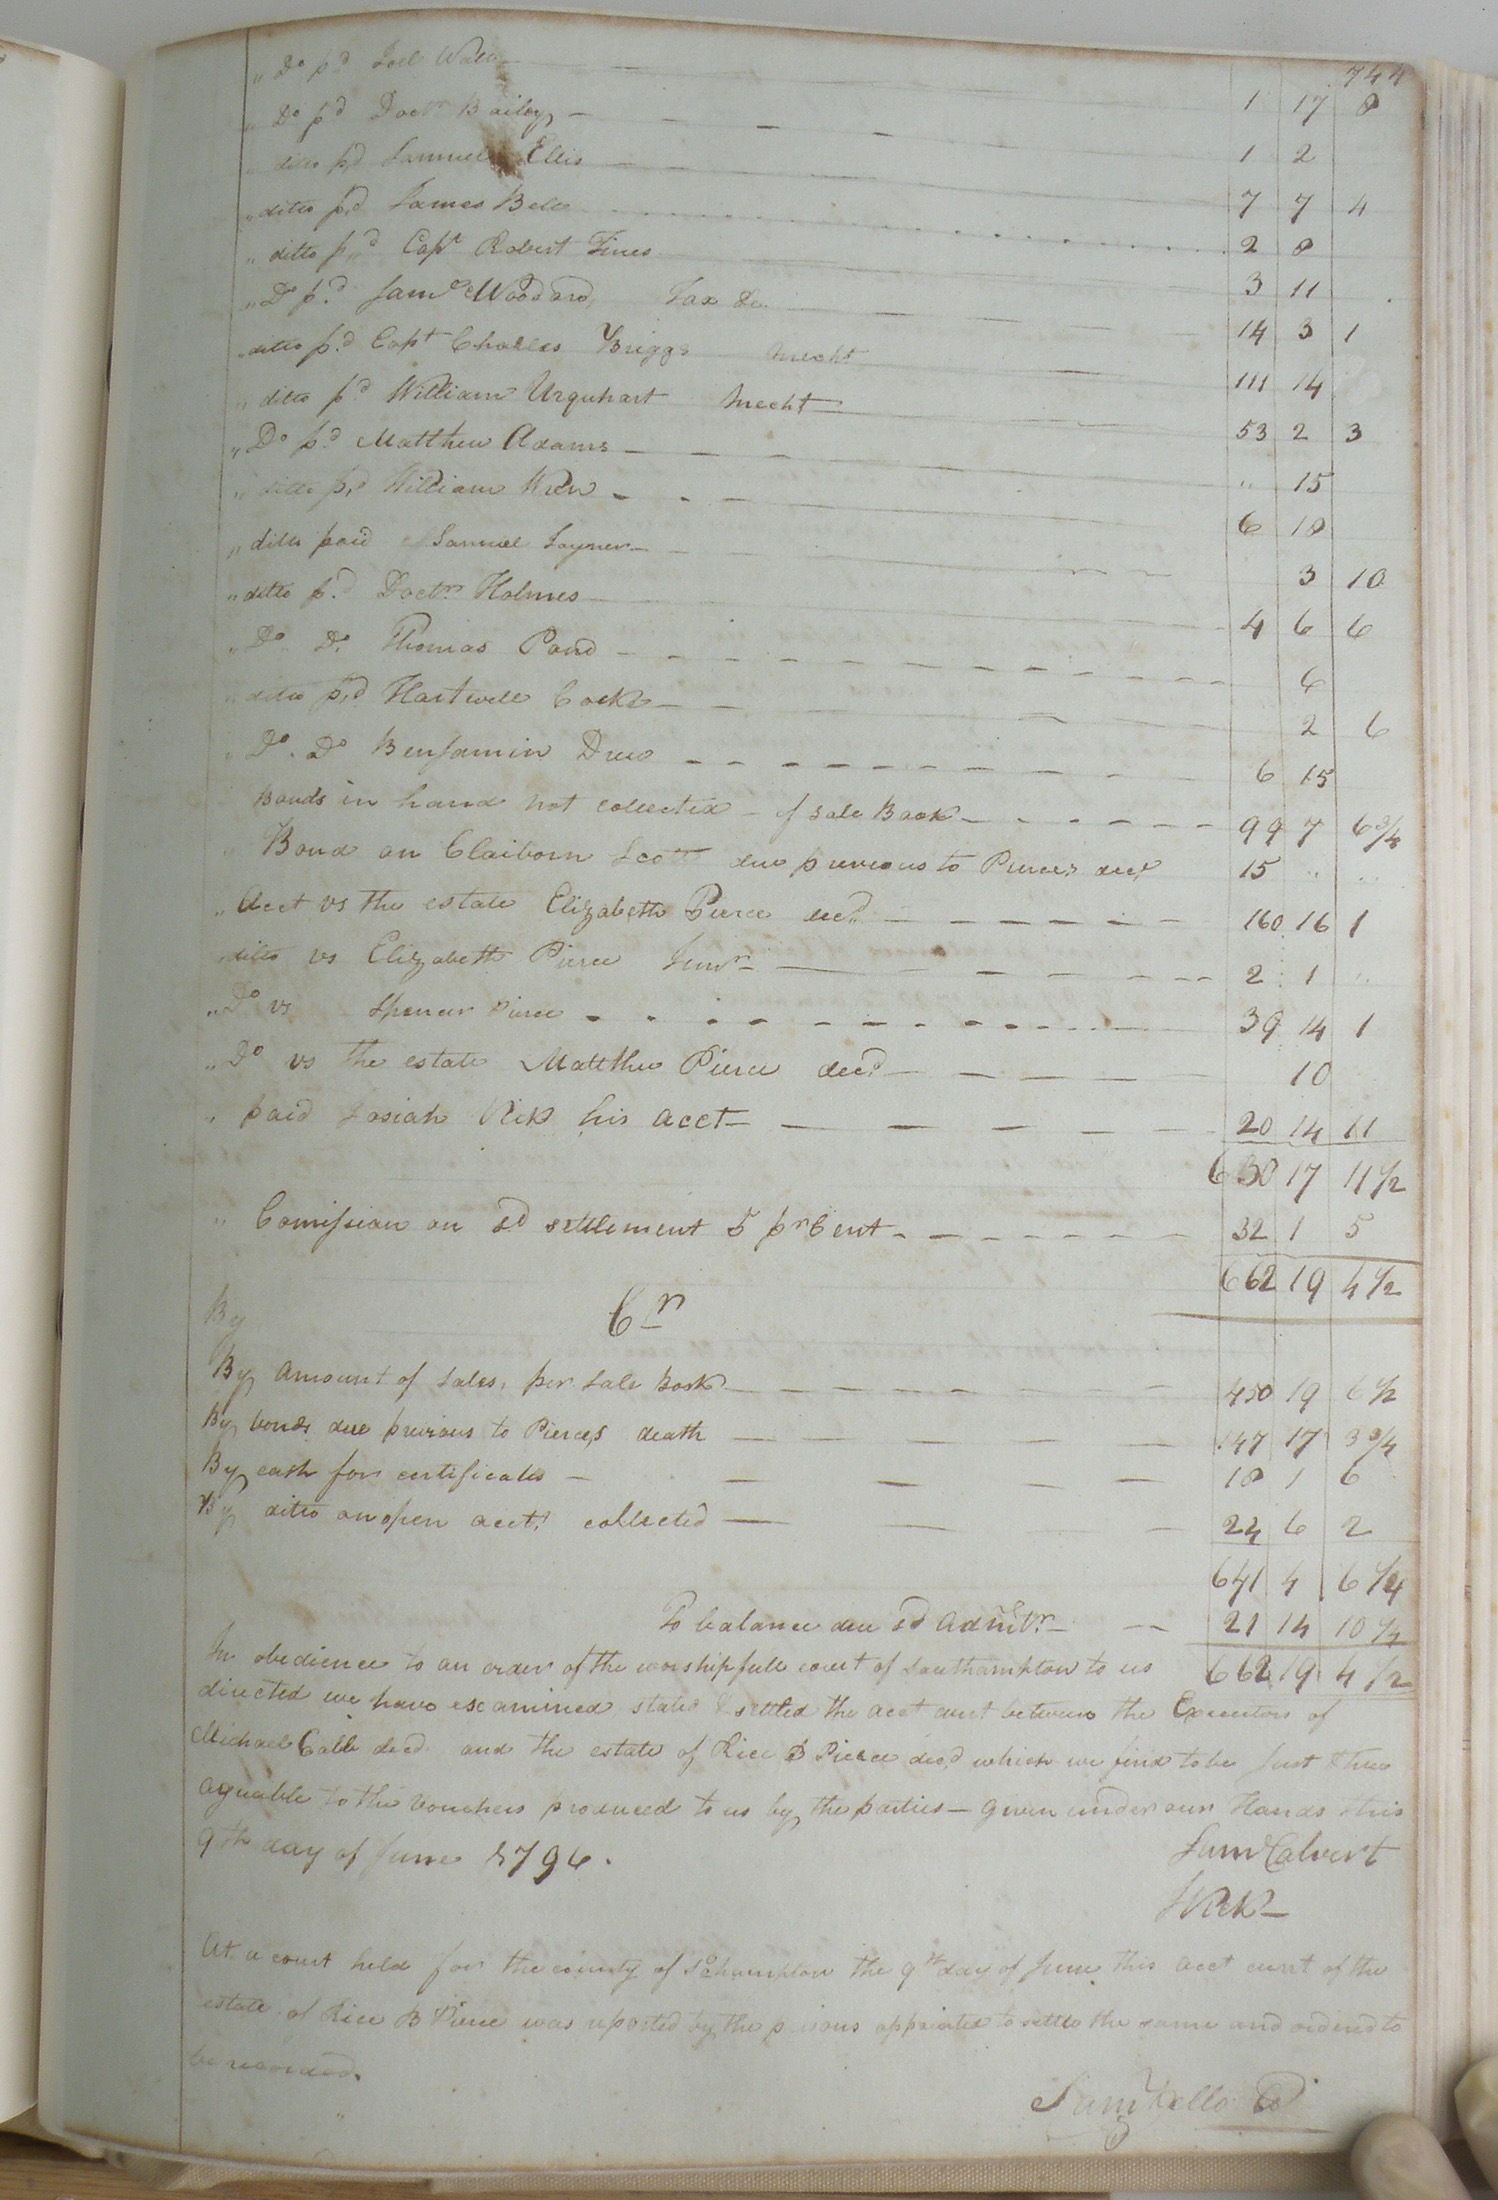 744
" Do pd Joel 1 17 8
" Do pd Doctr Bailey 1 2
" ditto pd Samuel Ellis 7 7 4
" ditto pd James Bell 2 8
" ditto pd Capt Robert 3 11
" Do pd Saml Woodard, Tax &c. 14 3 1
" ditto pd Capt Charles Briggs mecht 111 14
" ditto pd William Urquhart mecht 53 2 3
" Do pd Matthew Adams " 15
" ditto pd William Wren 6 18
" ditto paid Samuel Joyner 3 10
" ditto pd Doctr Holmes 4 6 6
" Do Do Thomas Pond 6
" ditto pd Hartwell Cocke 2 6
" Do Do Benjamin Drew 6 15
Bonds in hand not collected of sale Book 99 7 6 3/4
" Bond on Claiborn Scott due previous to Pierces decd 15 " "
" Acct vs the estate Elizabeth Pierce decd 160 16 1
" ditto vs Elizabeth Pierce Junr 2 1 "
" Do vs Spencer Pierce 39 14 1
" Do vs the estate Matthew Pierce decd 10
" paid Josiah Vick his acct 20 14 11
630 17 11 1/2
" Comission on sd settlement 5 pr Cent 32 1 5
662 19 4 1/2
By Cr
By amount of sales, per sale book 450 19 6 1/2
By bonds due previous to Pierces death 147 17 3 3/4
By cash for certificates 18 1 6
By ditto on open acct. collected 24 6 2
641 4 6 1/4
To balance due sd Admtr. 21 14 10 1/4
In obedience to an order of the worshipfull court of Southampton to us 662 19 4 1/2
directed we have examined stated & settled the acct curt between the Executors of
Michael Cabb decd. and the estate of Rice B Pierce decd which we find to be Just & true
agreeable to the Vouchers produced to us by the parties — given under our Hands this
9th day of June 1796. Saml Calvert
J Vick
At a court held for the county of Sohampton the 9th day of June this acct curnt of the
estate of Rice B Pierce was reported by the persons appointed to settle the same and ordered to
be recorded.
Saml Kello Cl